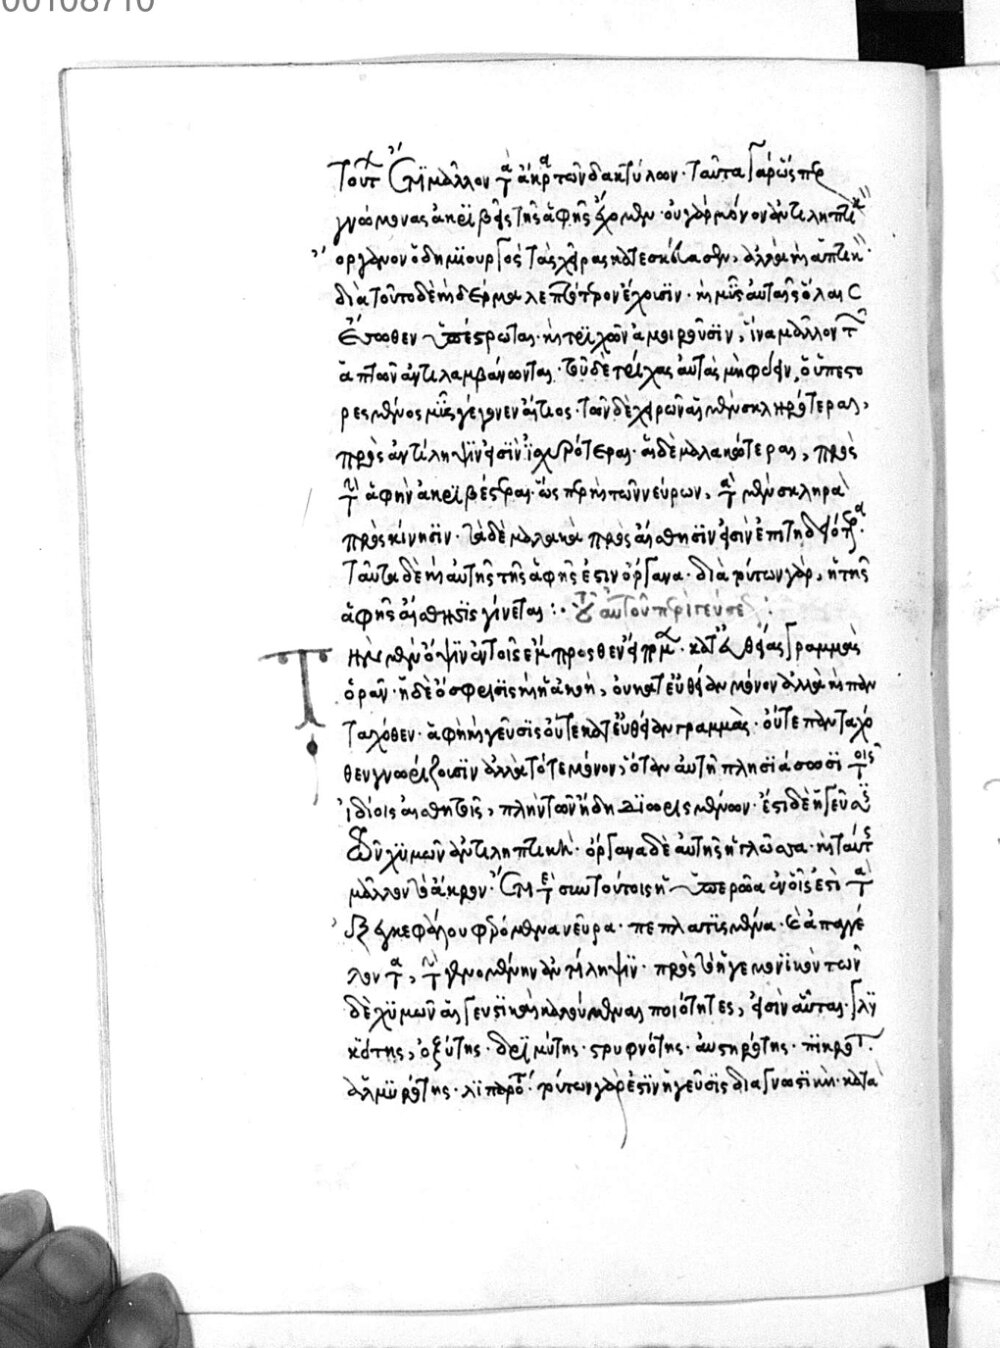 00108710
τούτων ἔτι μᾶλλον τὰ ἄκρα τῶν δακτύλων· ταῦτα γὰρ ὥσπερ
γνώμονας ἀκριβεῖς τῆς ἁφῆς ἔχομεν· οὐ γὰρ μόνον ἀντιληπτικὰ
ὄργανον ὁ δημιουργὸς τὰς χεῖρας κατεσκεύασεν, ἀλλὰ καὶ ἁπτικ
διὰ τοῦτο δὲ καὶ δέρμα λεπτότερον ἔχουσιν· καὶ μῦς αὐταῖς ὅλαις
ἔσωθεν ὑπέστρωται· καὶ τριχῶν ἀμοιροῦσιν, ἵνα μᾶλλον τῶν
ἁπτῶν ἀντιλαμβάνωνται· τοῦ δὲ τρίχας αὐτὰς μὴ φύειν, ὁ ὑπεστο
ρεσμένος μῦς γέγονεν αἴτιος· τῶν δὲ χειρῶν αἱ μὲν σκληρότεραι,
πρὸς ἀντίληψιν εἰσὶν ἰσχυρότεραι· αἱ δὲ μαλακώτεραι, πρὸς
τὴν ἁφὴν ἀκριβέστεραι· ὥσπερ καὶ τῶν νεύρων, τὰ μὲν σκληρὰ
πρὸς κίνησιν· τὰ δὲ μαλακὰ πρὸς αἴσθησιν εἰσὶν ἐπιτηδειότερα·
ταῦτα δὲ καὶ αὐτῆς τῆς ἁφῆς ἐστιν ὄργανα· διὰ τούτων γὰρ, ἡ τῆς
ἁφῆς αἴσθησις γίνεται:· τοῦ αὐτοῦ περὶ γεύσεως:
Τὴν μὲν ὄψιν ἐν τοῖς ἔμπροσθεν εἴπομεν· κατ' εὐθείας γραμμὰς
ὁρᾶν· ἡ δὲ ὄσφρησις καὶ ἡ ἀκοὴ, οὐ κατ' εὐθεῖαν μόνον ἀλλὰ καὶ παν
ταχόθεν· ἁφὴ καὶ γεῦσις οὔτε κατ' εὐθεῖαν γραμμὰς· οὔτε πανταχό
θεν γνωρίζουσιν ἀλλὰ τότε μόνον, ὅταν αὐτῇ πλησιάσωσι τοῖς
ἰδίοις αἰσθητοῖς, πλὴν τῶν ἤδη διωρισμένων· ἔστι δὲ ἡ γεῦσις
τῶν χυμῶν ἀντιληπτική· ὄργανα δὲ αὐτῆς ἡ γλῶσσα· καὶ ταύτης
μᾶλλον τὸ ἄκρον· ἔτι τε σὺν τούτοις ἡ ὑπερῶα ἐν οἷς ἐστὶ τὰ
ἐξ ἐγκεφάλου φερόμενα νεῦρα· πεπλατυσμένα· καὶ ἀπαγγέ
λλοντα, τὴν γενομένην ἀντίληψιν· πρὸς τὸ ἡγεμονικὸν τῶν
δὲ χυμῶν αἱ γευστικαὶ καλούμεναι ποιότητες, εἰσὶν αὗται· γλυ
κύτης, ὀξύτης· δριμύτης· στρυφνότης· αὐστηρότης· πικρότης·
ἁλμυρότης· λιπαρότης· τούτων γὰρ ἐστὶν ἡ γεῦσις διαγνωστική· κατὰ